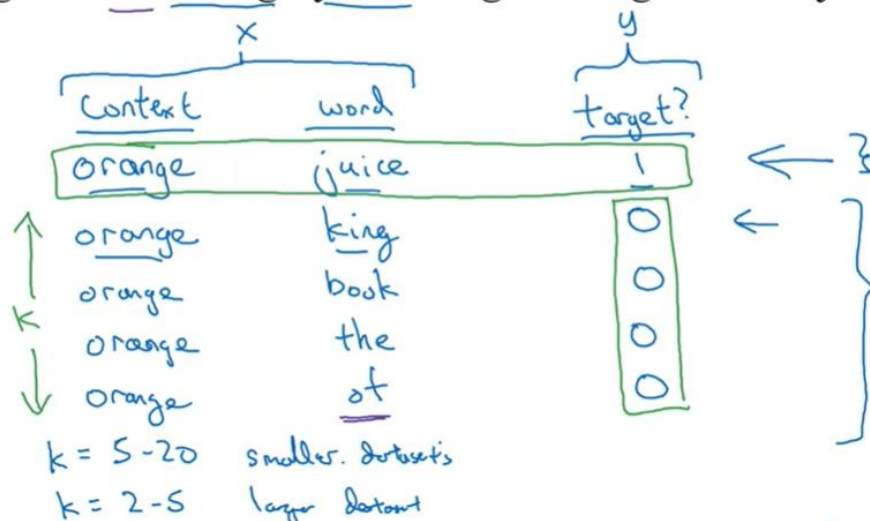 x y
context word target?
orange juice 1
orange king 0
orange book 0
orange the 0
orange of 0
k
k = 5-20 smaller. datasets
k = 2-5 larger dataset